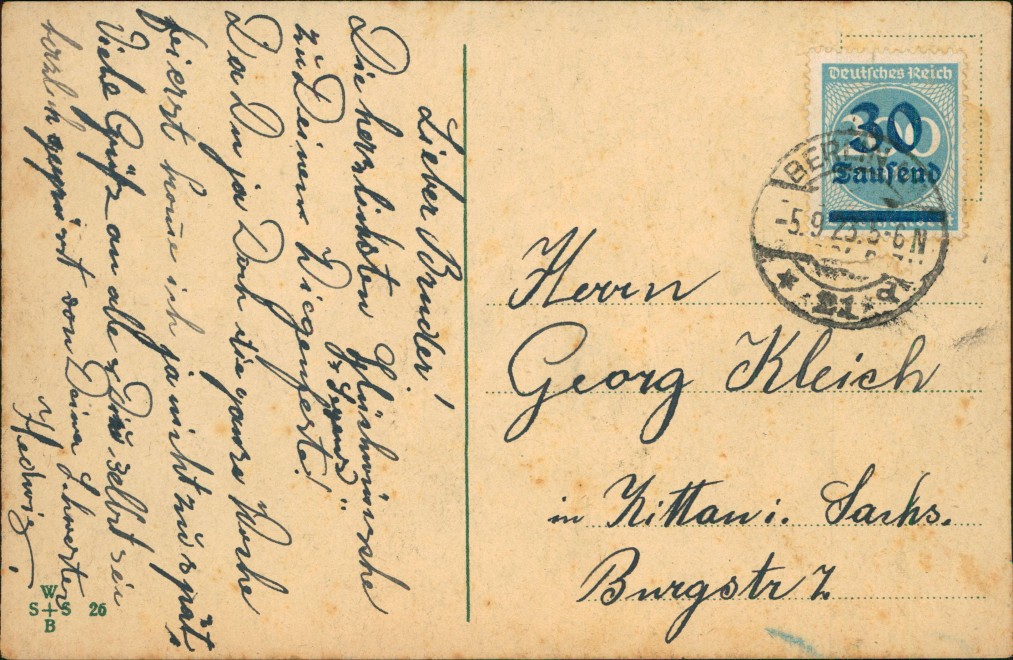 Lieber Bruder!
Die herzlichsten Glückwünsche
zu Deinem Wiegenfeste!
Da Du ja Doch die ganze Woche
„Jugend"
feierst komme ich ja nicht zu spät,
Viele Grüße an alle u. Du selbst sei
herzlich gegrüßt von Deiner Schwester
Hedwig.
W
S+S 26
B
Deutsches Reich
30
Tausend
BERLIN
-5.9.23.5-6N
* 21 * d
Herrn
Georg Kleich
in Zittau i. Sachs.
Burgstr 2.